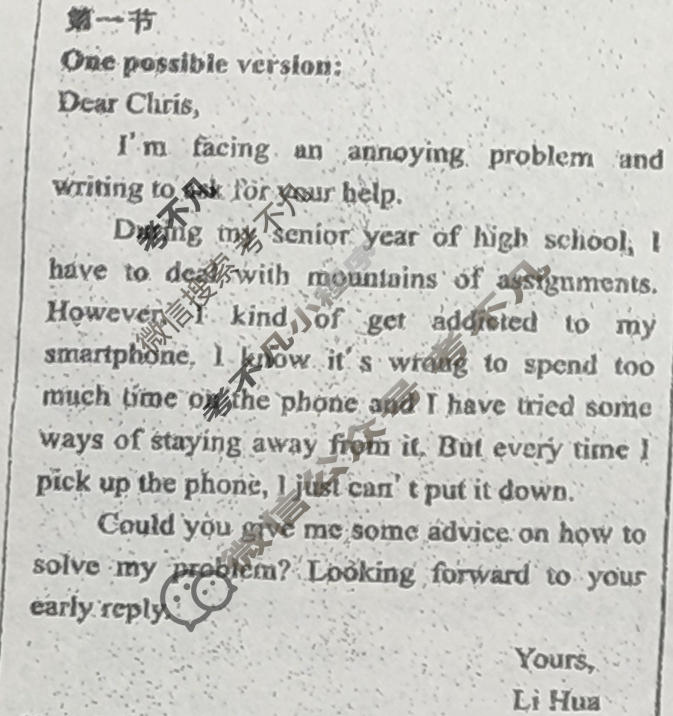 第一节
One possible version:
Dear Chris,
I'm facing an annoying problem and
writing to ask for your help.
During my senior year of high school, I
have to deal with mountains of assignments.
However, I kind of get addicted to my
smartphone. I know it's wrong to spend too
much time on the phone and I have tried some
ways of staying away from it. But every time I
pick up the phone, I just can't put it down.
Could you give me some advice on how to
solve my problem? Looking forward to your
early reply.
Yours,
Li Hua
考不凡
微信搜索 考不凡
考不凡小程序
微信公众号 考不凡